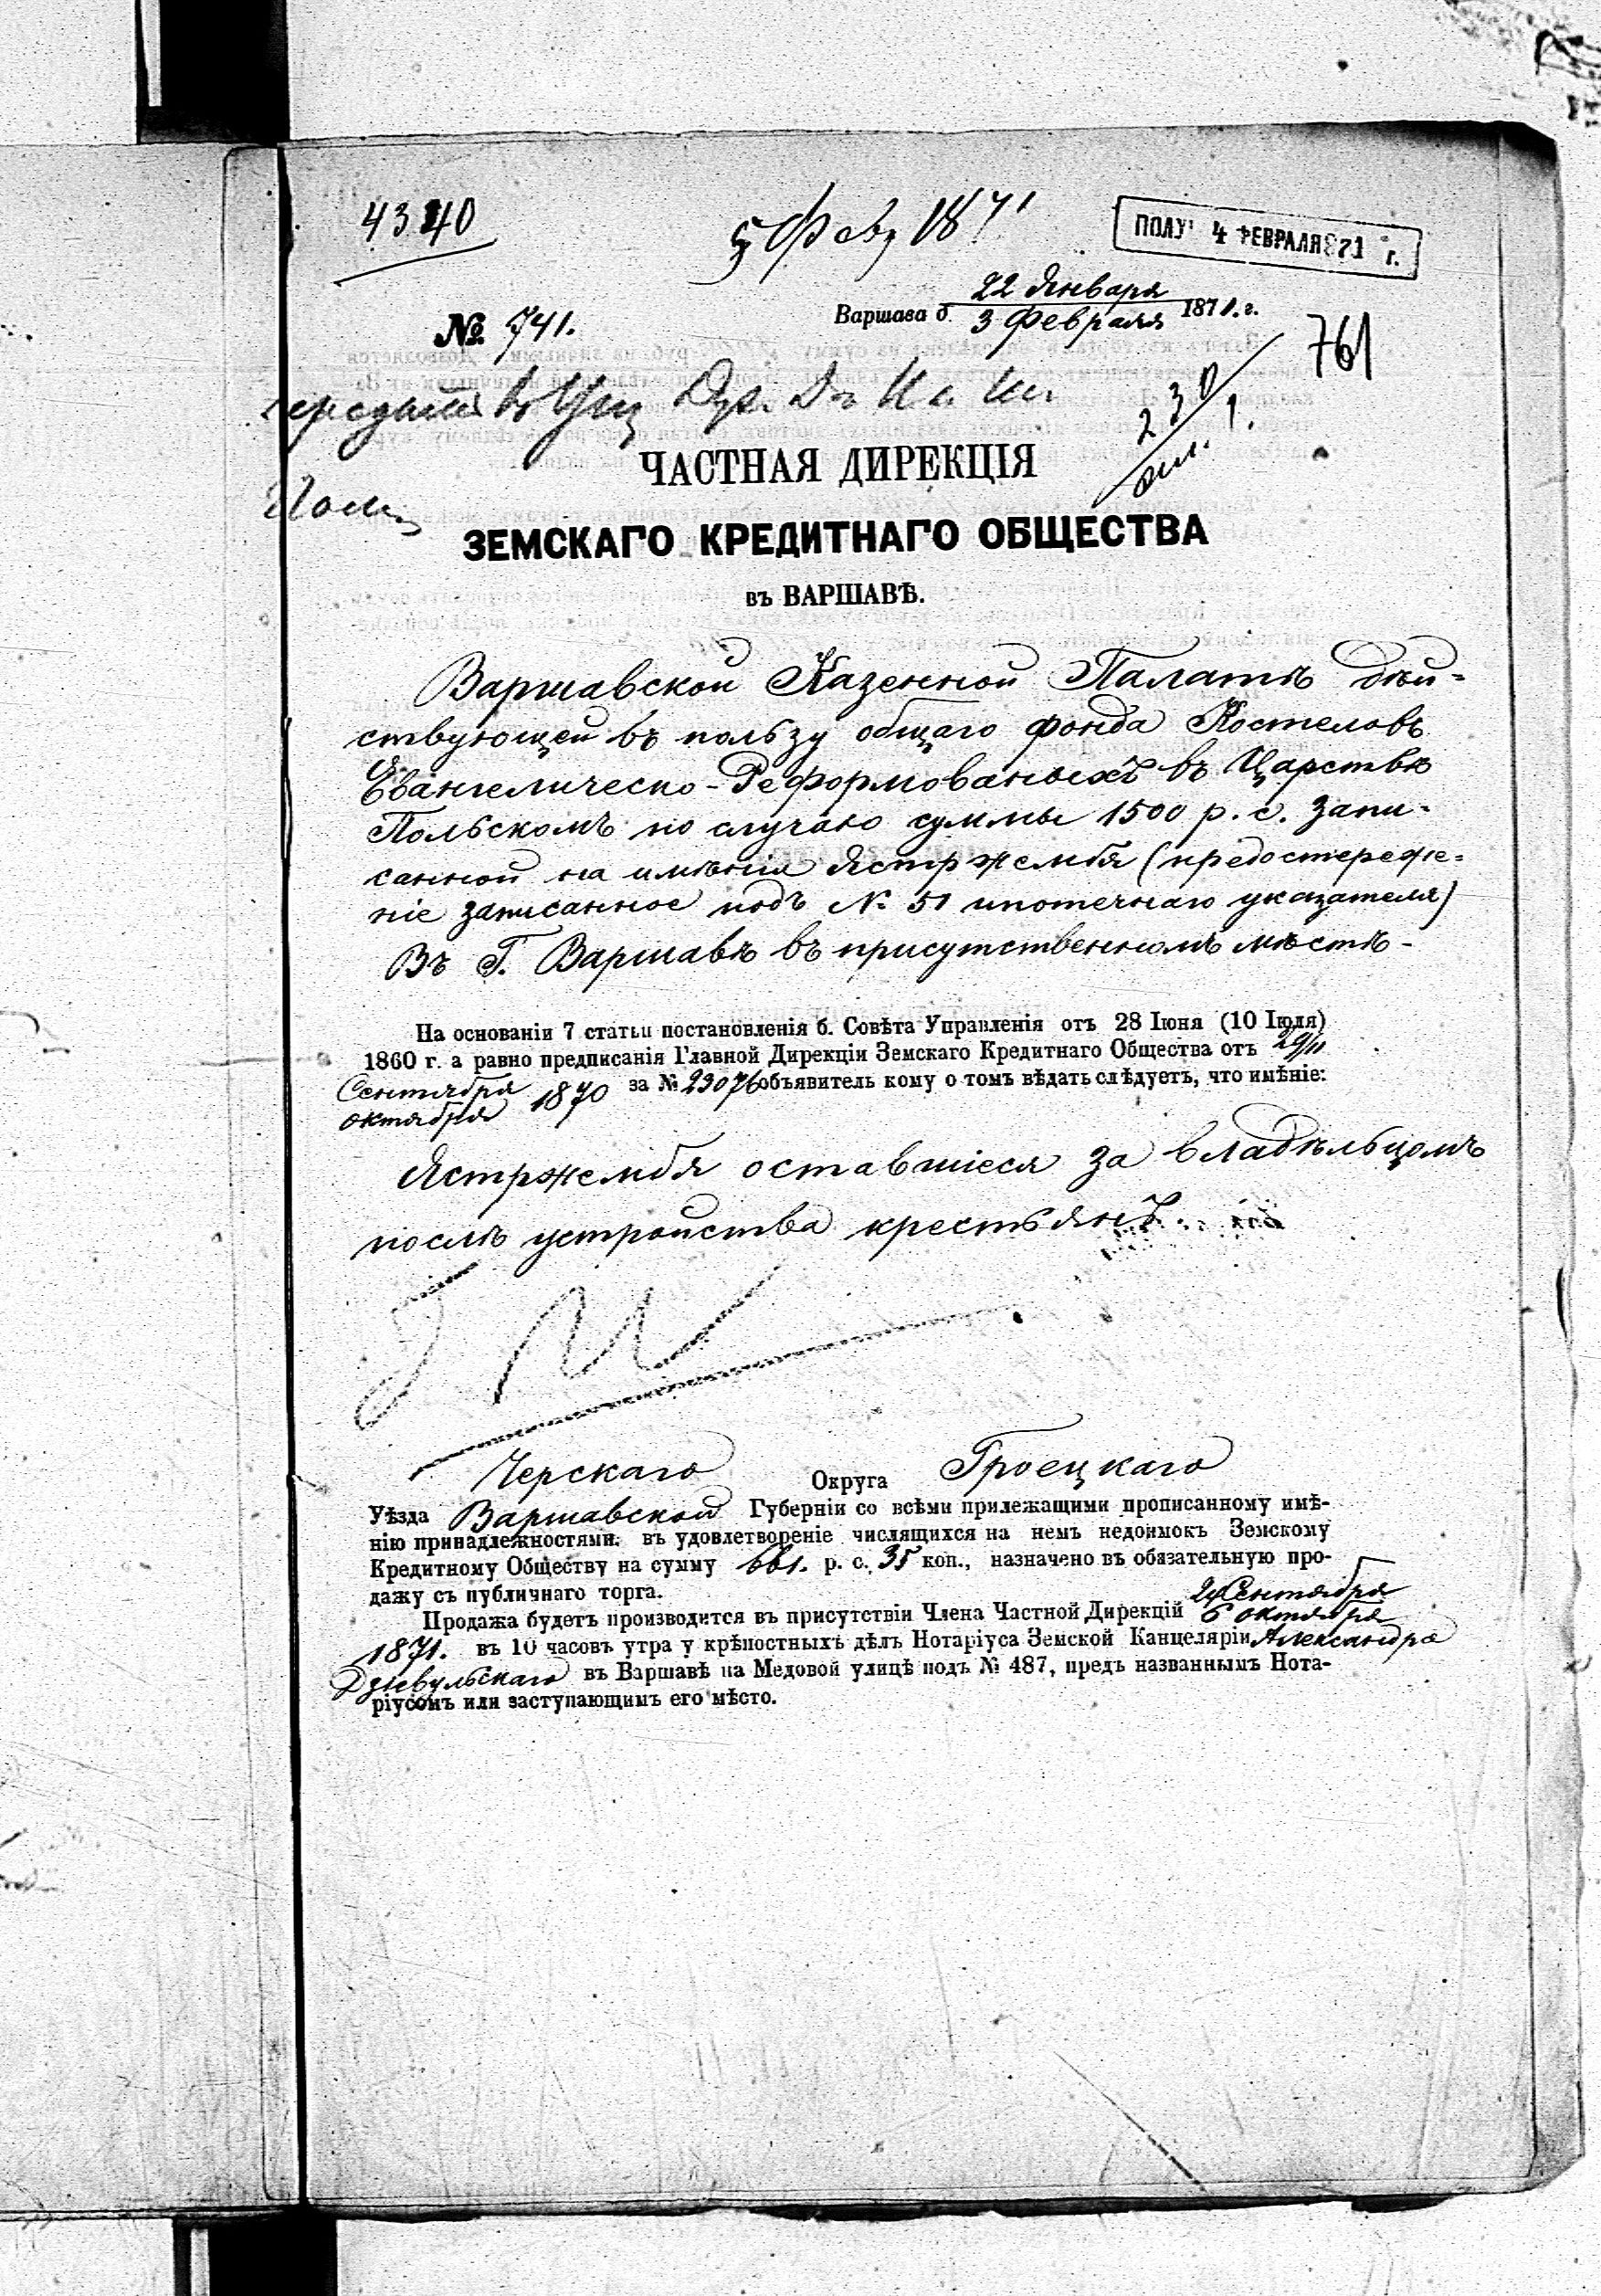 4340
5 Фев 1871
ПОЛУ 4 ФЕВРАЛЯ 871 г.
№ 741.
Варшава д. 22 Января / 3 Февраля 1871. г.
761
230
1.
ЧАСТНАЯ ДИРЕКЦІЯ
ЗЕМСКАГО КРЕДИТНАГО ОБЩЕСТВА
въ ВАРШАВѢ.
Варшавской Казенной Палатѣ дѣй-
ствующей въ пользу общаго фонда Костеловъ
Евангелическо-Реформованыхъ въ Царствѣ
Польскомъ по случаю суммы 1500 р. с. запи-
санной на имѣнія Ястржембя (предостереже-
ніе записанное подъ № 51 ипотечнаго указателя)
Въ Г. Варшавѣ въ присутственномъ мѣстѣ-
На основаніи 7 статьи постановленія б. Совѣта Управленія отъ 28 Іюня (10 Іюля)
1860 г. а равно предписанія Главной Дирекціи Земскаго Кредитнаго Общества отъ 29/11
Сентября / Октября 1870 за № 23076 объявитель кому о томъ вѣдать слѣдуетъ, что имѣніе:
Ястржембя оставшіеся за владѣльцомъ
послѣ устройства крестьянъ.
Черскаго Округа Гроецкаго
Уѣзда Варшавской Губерніи со всѣми прилежащими прописанному имѣ-
нію принадлежностями: въ удовлетвореніе числящихся на немъ недоимокъ Земскому
Кредитному Обществу на сумму 661. р. с. 35 коп., назначено въ обязательную про-
дажу съ публичнаго торга.
Продажа будетъ производится въ присутствіи Члена Частной Дирекцій 24 Сентября / 6 Октября
1871. въ 10 часовъ утра у крѣпостныхъ дѣлъ Нотаріуса Земской Канцеляріи Александра
Дзевульскаго въ Варшавѣ на Медовой улицѣ подъ № 487, предъ названнымъ Нота-
ріусомъ или заступающимъ его мѣсто.